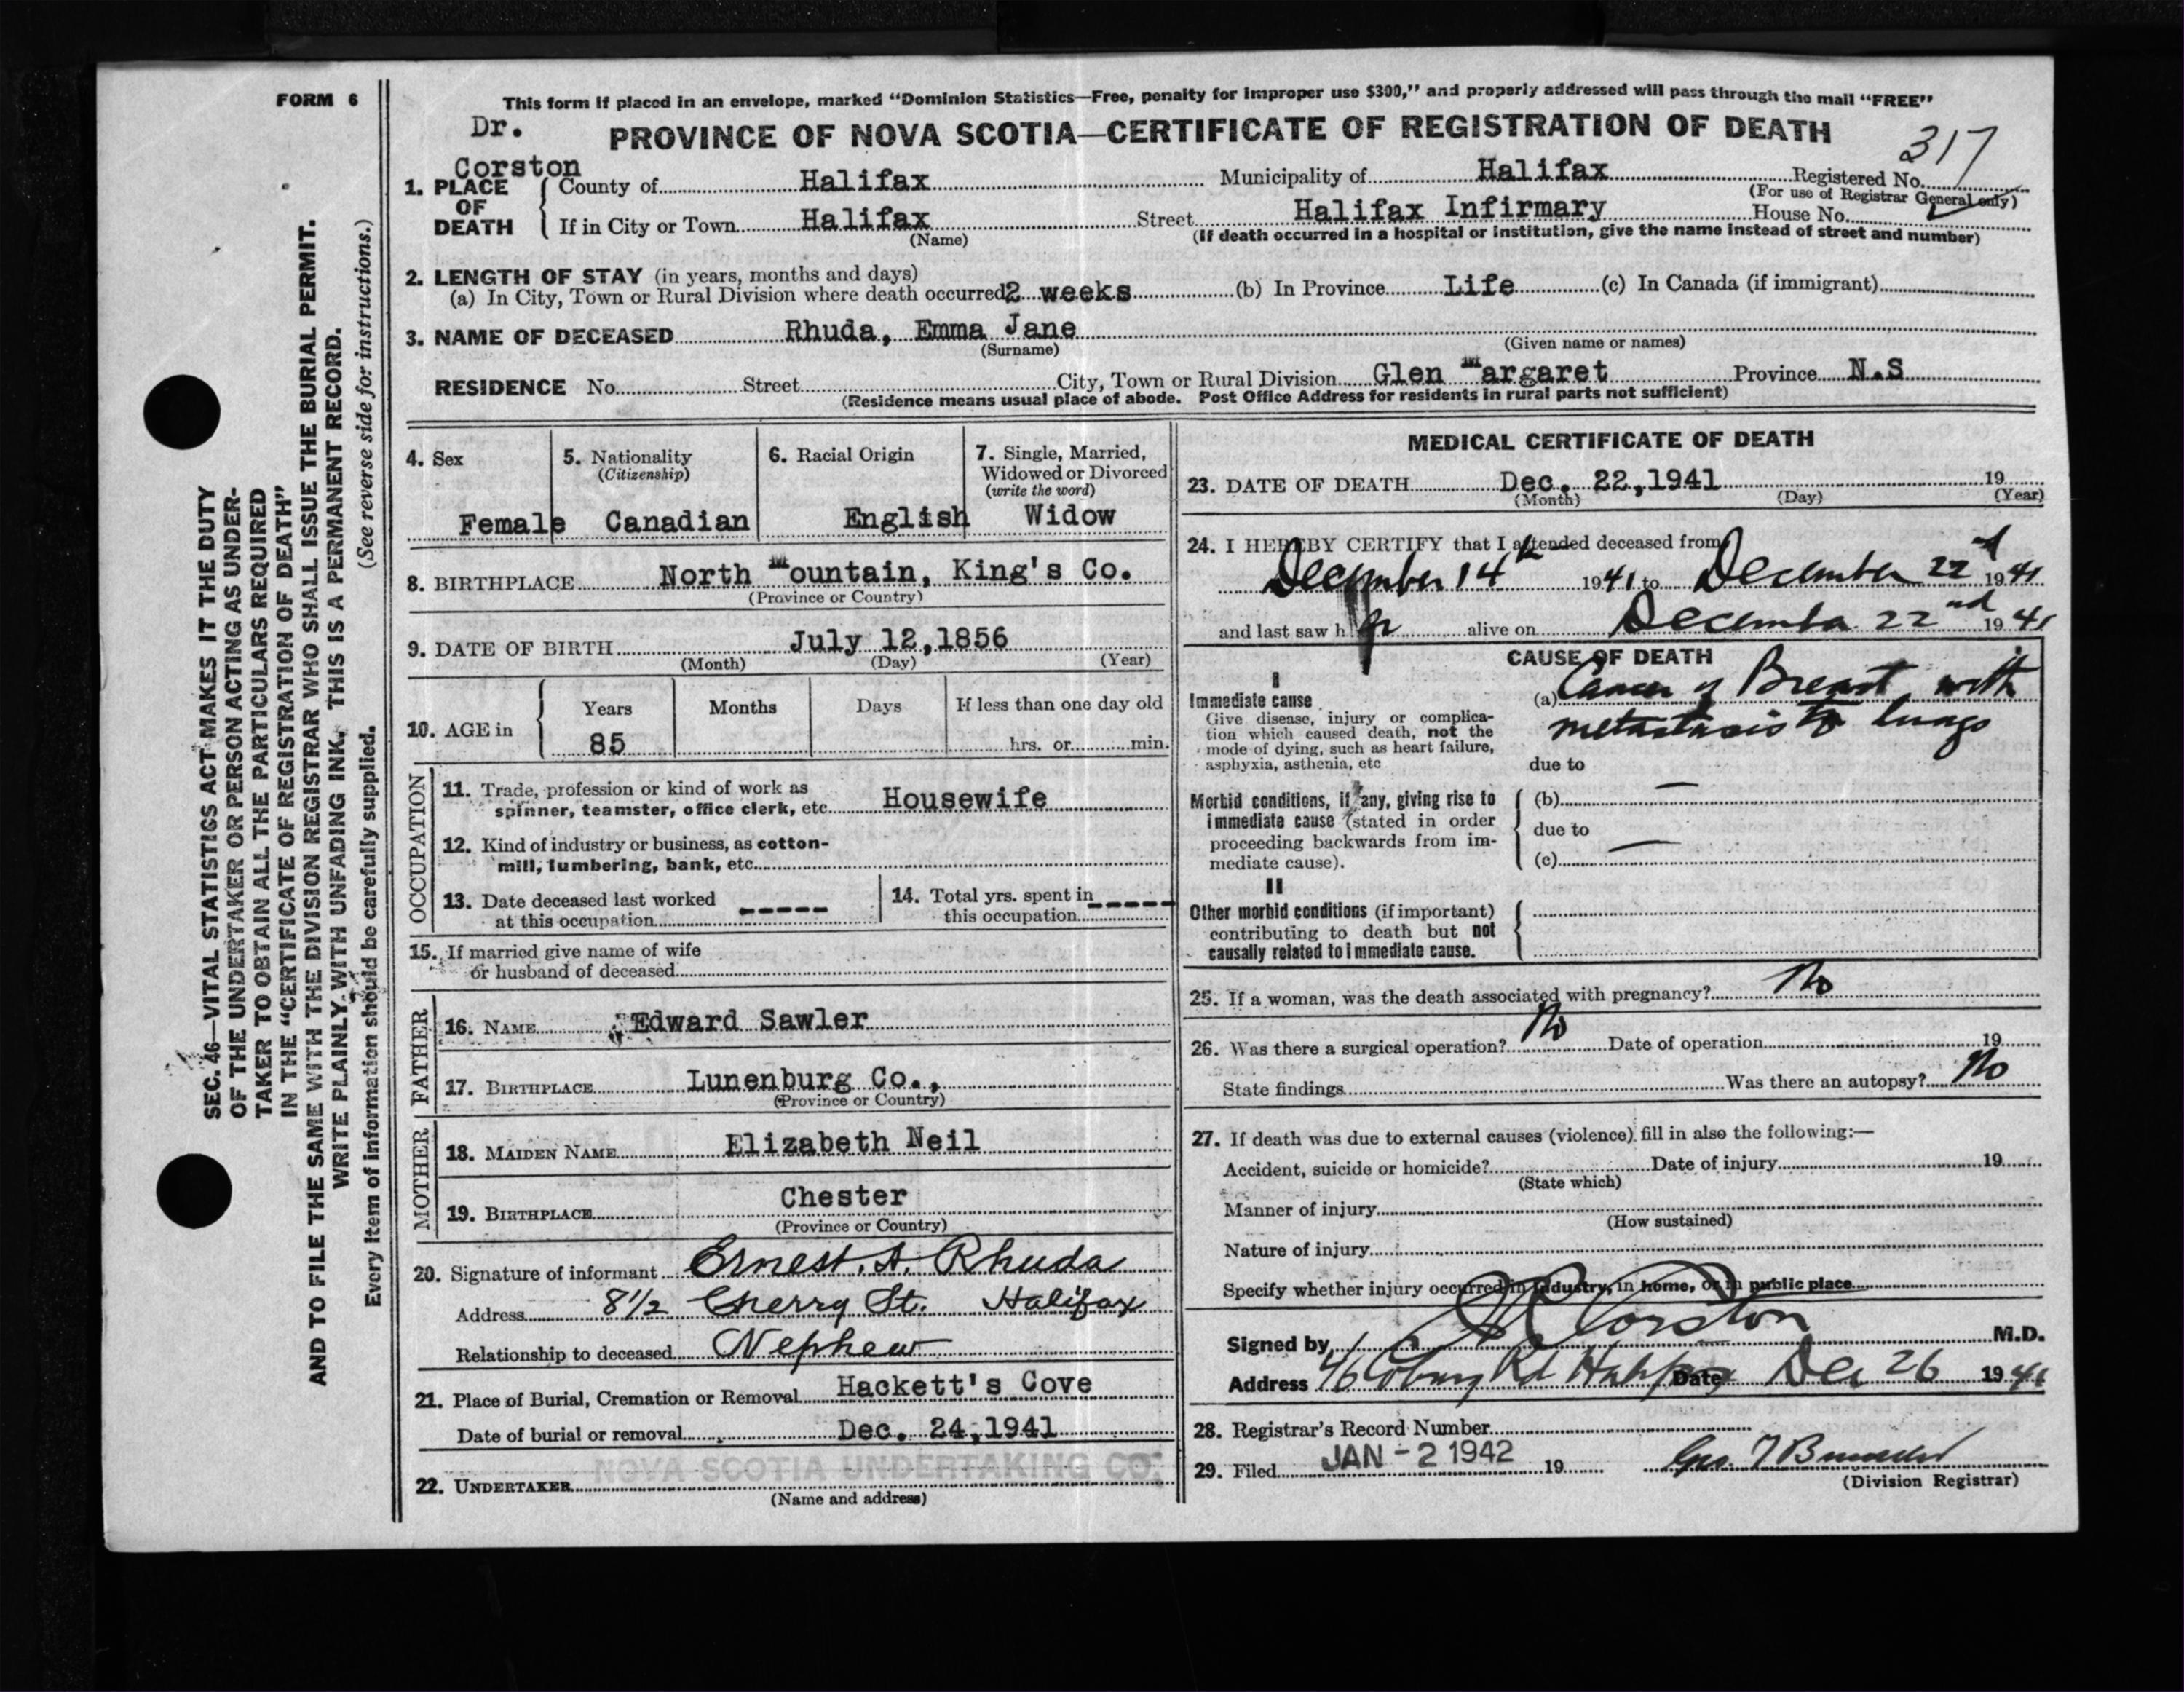 FORM 6
SEC. 46—VITAL STATISTICS ACT MAKES IT THE DUTY
OF THE UNDERTAKER OR PERSON ACTING AS UNDER-
TAKER TO OBTAIN ALL THE PARTICULARS REQUIRED
IN THE "CERTIFICATE OF REGISTRATION OF DEATH"
AND TO FILE THE SAME WITH THE DIVISION REGISTRAR WHO SHALL ISSUE THE BURIAL PERMIT.
WRITE PLAINLY WITH UNFADING INK. THIS IS A PERMANENT RECORD.
Every item of information should be carefully supplied. (See reverse side for instructions.)
This form if placed in an envelope, marked "Dominion Statistics—Free, penalty for improper use $300," and properly addressed will pass through the mail "FREE"
Dr. Corston
PROVINCE OF NOVA SCOTIA—CERTIFICATE OF REGISTRATION OF DEATH
317
1. PLACE OF DEATH County of Halifax Municipality of Halifax Registered No.
(For use of Registrar General only)
If in City or Town Halifax Street Halifax Infirmary House No.
(Name) (If death occurred in a hospital or institution, give the name instead of street and number)
2. LENGTH OF STAY (in years, months and days)
(a) In City, Town or Rural Division where death occurred 2 weeks (b) In Province Life (c) In Canada (if immigrant)
3. NAME OF DECEASED Rhuda, Emma Jane
(Surname) (Given name or names)
RESIDENCE No. Street City, Town or Rural Division Glen Margaret Province N.S
(Residence means usual place of abode. Post Office Address for residents in rural parts not sufficient)
4. Sex 5. Nationality (Citizenship) 6. Racial Origin 7. Single, Married, Widowed or Divorced (write the word)
Female Canadian English Widow
8. BIRTHPLACE North Mountain, King's Co.
(Province or Country)
9. DATE OF BIRTH July 12, 1856
(Month) (Day) (Year)
10. AGE in Years Months Days If less than one day old
85 hrs. or min.
OCCUPATION
11. Trade, profession or kind of work as
spinner, teamster, office clerk, etc. Housewife
12. Kind of industry or business, as cotton-
mill, lumbering, bank, etc.
13. Date deceased last worked
at this occupation -----
14. Total yrs. spent in
this occupation -----
15. If married give name of wife
or husband of deceased
FATHER
16. NAME Edward Sawler
17. BIRTHPLACE Lunenburg Co.,
(Province or Country)
MOTHER
18. MAIDEN NAME Elizabeth Neil
19. BIRTHPLACE Chester
(Province or Country)
20. Signature of informant Ernest. A. Rhuda
Address 8 1/2 Cherry St. Halifax
Relationship to deceased Nephew
21. Place of Burial, Cremation or Removal Hackett's Cove
Date of burial or removal Dec. 24, 1941
NOVA SCOTIA UNDERTAKING CO.
22. UNDERTAKER
(Name and address)
MEDICAL CERTIFICATE OF DEATH
23. DATE OF DEATH Dec. 22, 1941 19
(Month) (Day) (Year)
24. I HEREBY CERTIFY that I attended deceased from
December 14th 1941 to December 22nd 1941
and last saw her alive on December 22nd 1941
CAUSE OF DEATH
I
Immediate cause
Give disease, injury or complica-
tion which caused death, not the
mode of dying, such as heart failure,
asphyxia, asthenia, etc
(a) Cancer of Breast with
metastasis to lungs
due to
Morbid conditions, if any, giving rise to
immediate cause (stated in order
proceeding backwards from im-
mediate cause).
(b) —
due to
(c) —
II
Other morbid conditions (if important)
contributing to death but not
causally related to immediate cause.
25. If a woman, was the death associated with pregnancy? No
26. Was there a surgical operation? No Date of operation 19
State findings Was there an autopsy? No
27. If death was due to external causes (violence) fill in also the following:—
Accident, suicide or homicide? Date of injury 19
(State which)
Manner of injury
(How sustained)
Nature of injury
Specify whether injury occurred in industry, in home, or in public place
Signed by Corston M.D.
Address 46 Coburg Rd Halifax Date Dec 26 1941
28. Registrar's Record Number
29. Filed JAN - 2 1942 19
(Division Registrar)